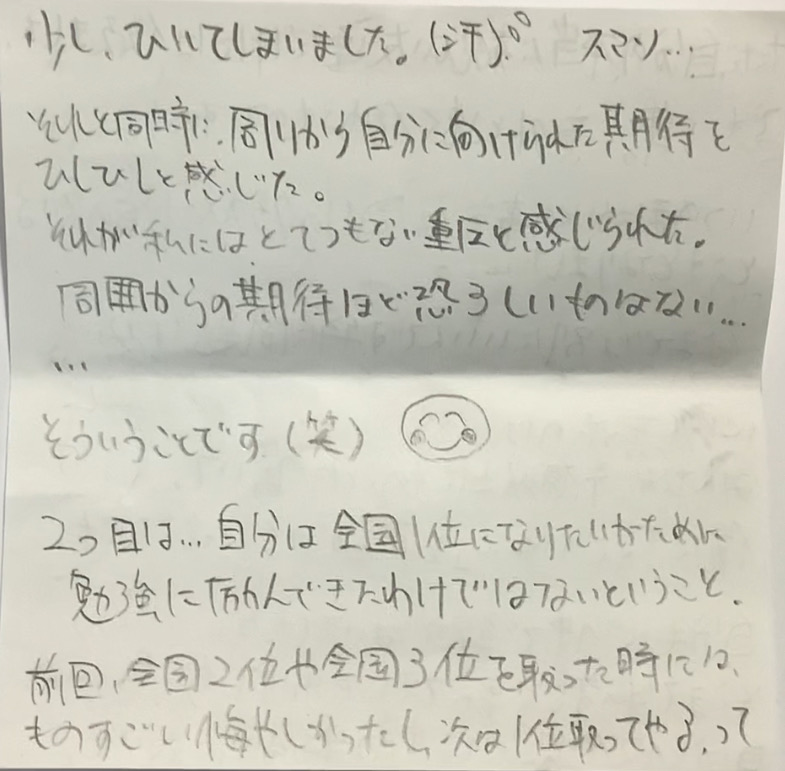 少し、ひいてしまいました。(汗)。゜ スマソ…
それと同時に、周りから自分に向けられた期待を
ひしひしと感じた。
それが私にはとてつもない重圧と感じられた。
周囲からの期待ほど恐ろしいものはない…
…
そういうことです(笑)
2つ目は…自分は全国1位になりたいがために
勉強に励んできたわけではないということ。
前回、全国2位や全国3位を取った時には、
ものすごい悔やしかったし、次は1位取ってやる、って